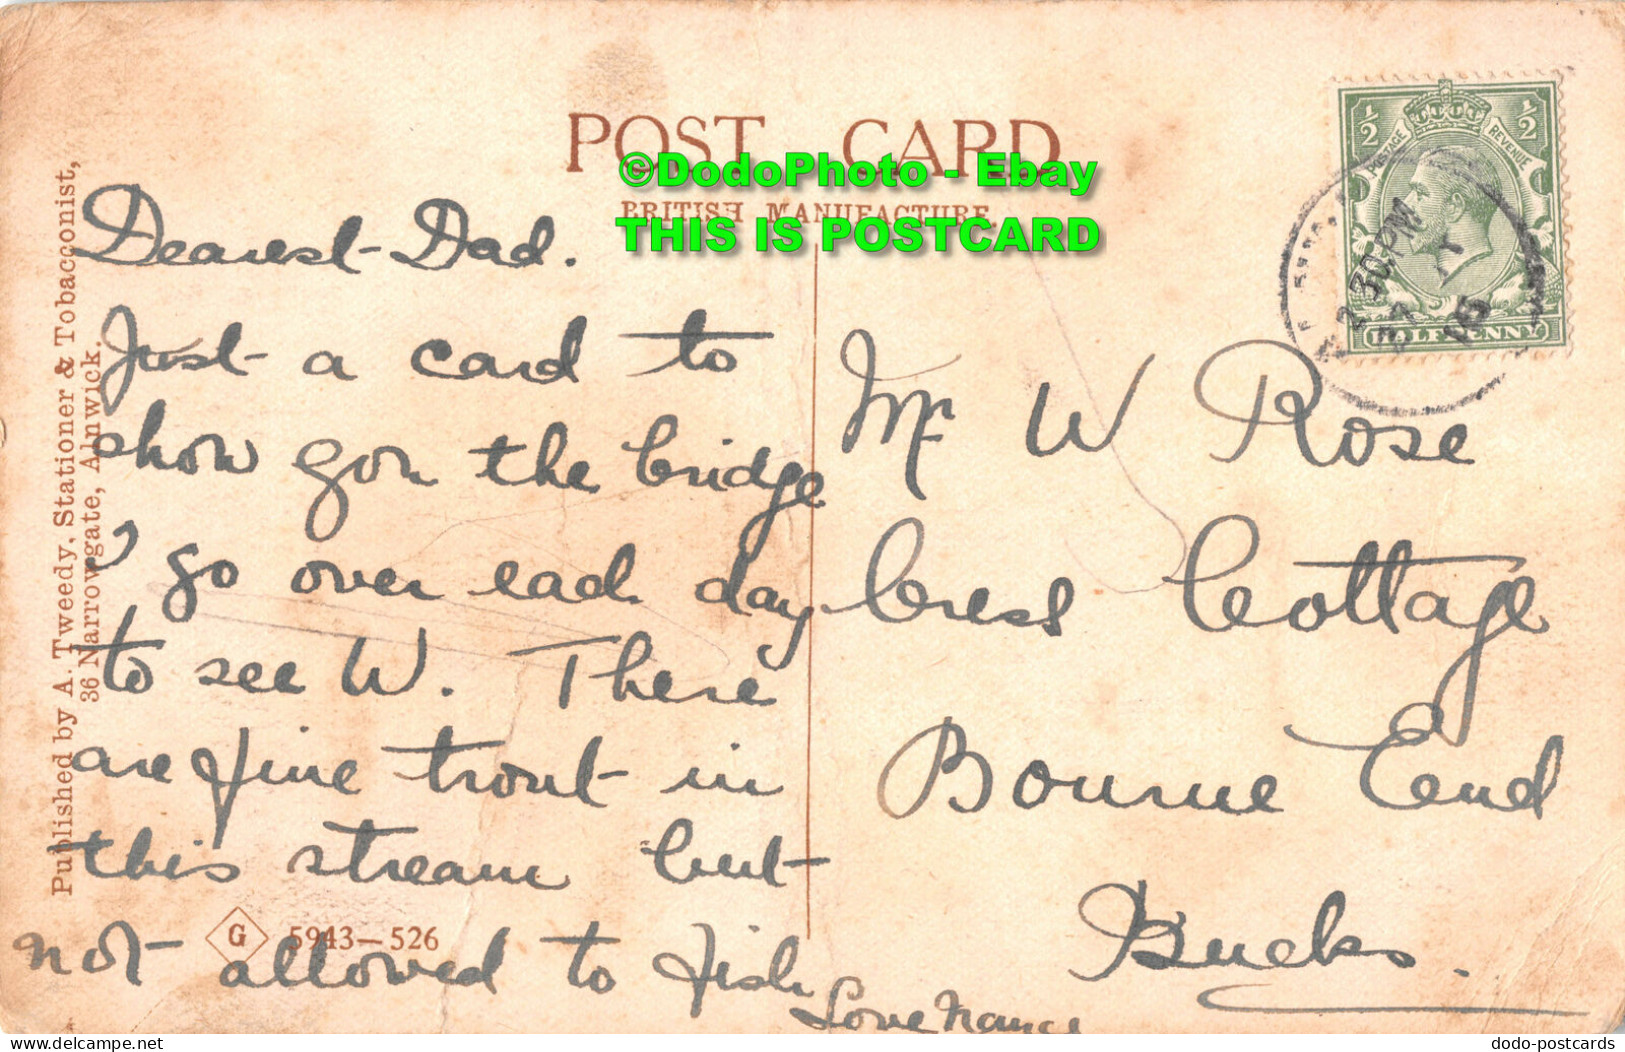 POST CARD
BRITISH MANUFACTURE
©DodoPhoto - Ebay
THIS IS POSTCARD
Published by A. Tweedy, Stationer & Tobacconist,
36 Narrowgate, Alnwick.
Dearest Dad.
Just a card to
show you the bridge
I go over each day
to see W. There
are fine trout in
this stream but
not allowed to fish
Love Nance
G 5943-526
Mr W Rose
Crest Cottage
Bourne End
Bucks.
1/2 1/2
POSTAGE REVENUE
HALFPENNY
2.30 PM
15
Delcampe.net
dodo-postcards